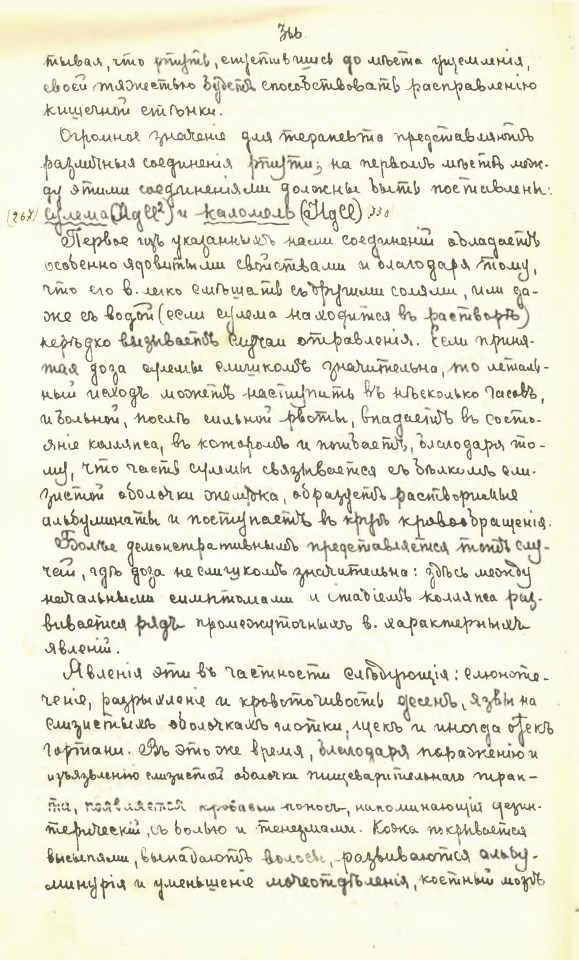 366.
тывая, что ртуть, спустившись до мѣста ущемленія,
своей тяжестью будетъ способствовать расправленію
кишечной стѣнки.
Огромное значеніе для терапевта представляютъ
различныя соединенія ртути; на первомъ мѣстѣ меж-
ду этими соединеніями должны быть поставлены:
(267) сулема (HgCl²) и каломель (HgCl) 330
Первое изъ указанныхъ нами соединеній обладаетъ
особенно ядовитыми свойствами и благодаря тому,
что его в. легко смѣшать съ другими солями, или да-
же съ водой (если сулема находится въ растворѣ)
нерѣдко вызываетъ случаи отравленія. Если приня-
тая доза сулемы слишкомъ значительна, то леталь-
ный исходъ можетъ наступить въ нѣсколько часовъ,
и больной, послѣ сильной рвоты, впадаетъ въ состо-
яніе коллапса, въ которомъ и погибаетъ, благодаря то-
му, что часть сулемы связывается съ бѣлкомъ сли-
зистой оболочки желудка, образуетъ растворимые
альбуминаты и поступаетъ въ кругъ кровообращенія.
Болѣе демонстративнымъ представляется тотъ слу-
чай, гдѣ доза не слишкомъ значительна: здѣсь между
начальными симптомами и стадіемъ коллапса раз-
вивается рядъ промежуточныхъ в. характерныхъ
явленій.
Явленія эти въ частности слѣдующія: слюноте-
ченіе, разрыхленіе и кровоточивость десенъ, язвы на
слизистыхъ оболочкахъ глотки, щекъ и иногда отекъ
гортани. Въ это же время, благодаря пораженію и
изъязвленію слизистой оболочки пищеварительнаго трак-
та, появляется кровавый поносъ, напоминающій дезин-
терическій, съ болью и тенезмами. Кожа покрывается
высыпями, выпадаютъ волосы, развиваются альбу-
минурія и уменьшеніе мочеотдѣленія, костный мозгъ